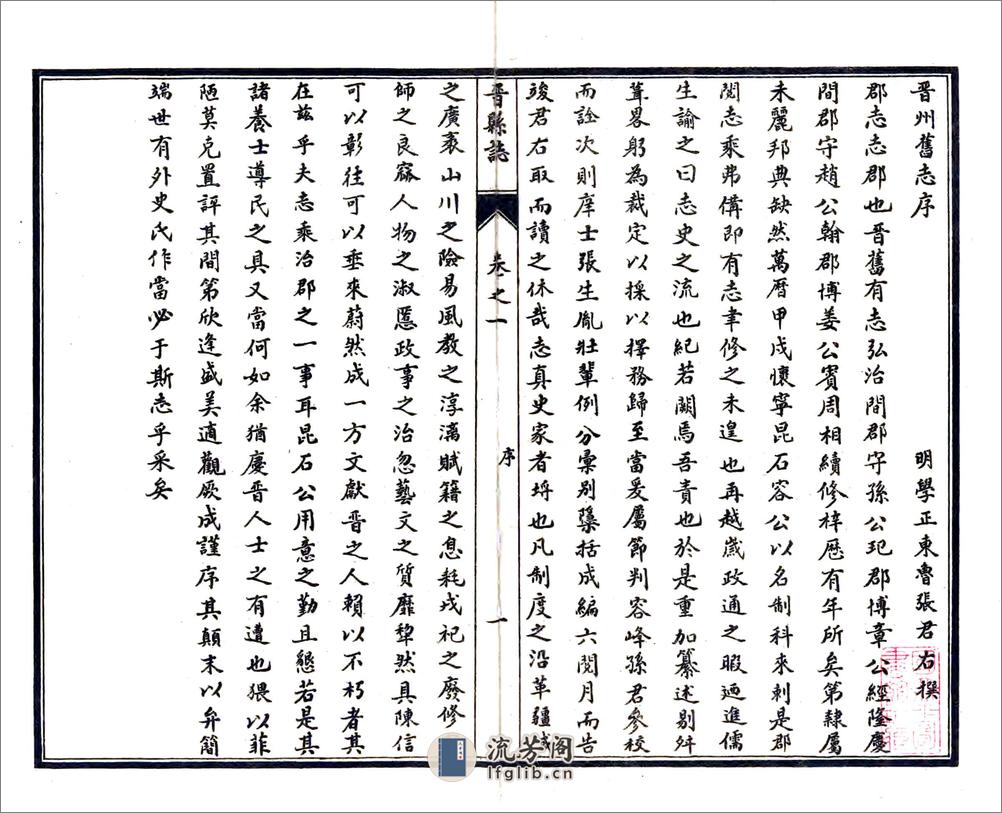 晋州舊志序
明學正東魯張君右撰
郡志志郡也晋舊有志弘治間郡守孫公玘郡博章公經隆慶
間郡守趙公翰郡博姜公賓周相續修梓歷有年所矣第隷屬
未麗邦典缺然萬曆甲戌懷寧昆石容公以名制科来刺是郡
閱志乘弗備即有志聿修之未遑也再越歲政通之暇廼進儒
生諭之曰志史之流也紀若闕焉吾責也於是重加纂述剔舛
葺畧躬為裁定以採以擇務歸至當爰屬節判容峰孫君參校
而詮次則庠士張生胤壮輩例分彙别檃括成編六閱月而告
竣君右取而讀之休哉志真史家者埒也凡制度之沿革疆域
晋縣誌
卷之一
序
一
之廣袤山川之險易風教之淳漓賦籍之息耗戎祀之廢修
師之良窳人物之淑慝政事之治忽藝文之質靡犂然具陳信
可以彰往可以垂来蔚然成一方文獻晋之人賴以不朽者其
在兹乎夫志乘治郡之一事耳昆石公用意之勤且懇若是其
諸養士導民之具又當何如余猶慶晋人士之有遭也猥以菲
陋莫克置評其間第欣逢盛美適觀厥成謹序其顛末以弁簡
端世有外史氏作當必于斯志乎采矣
流芳阁
lfglib.cn